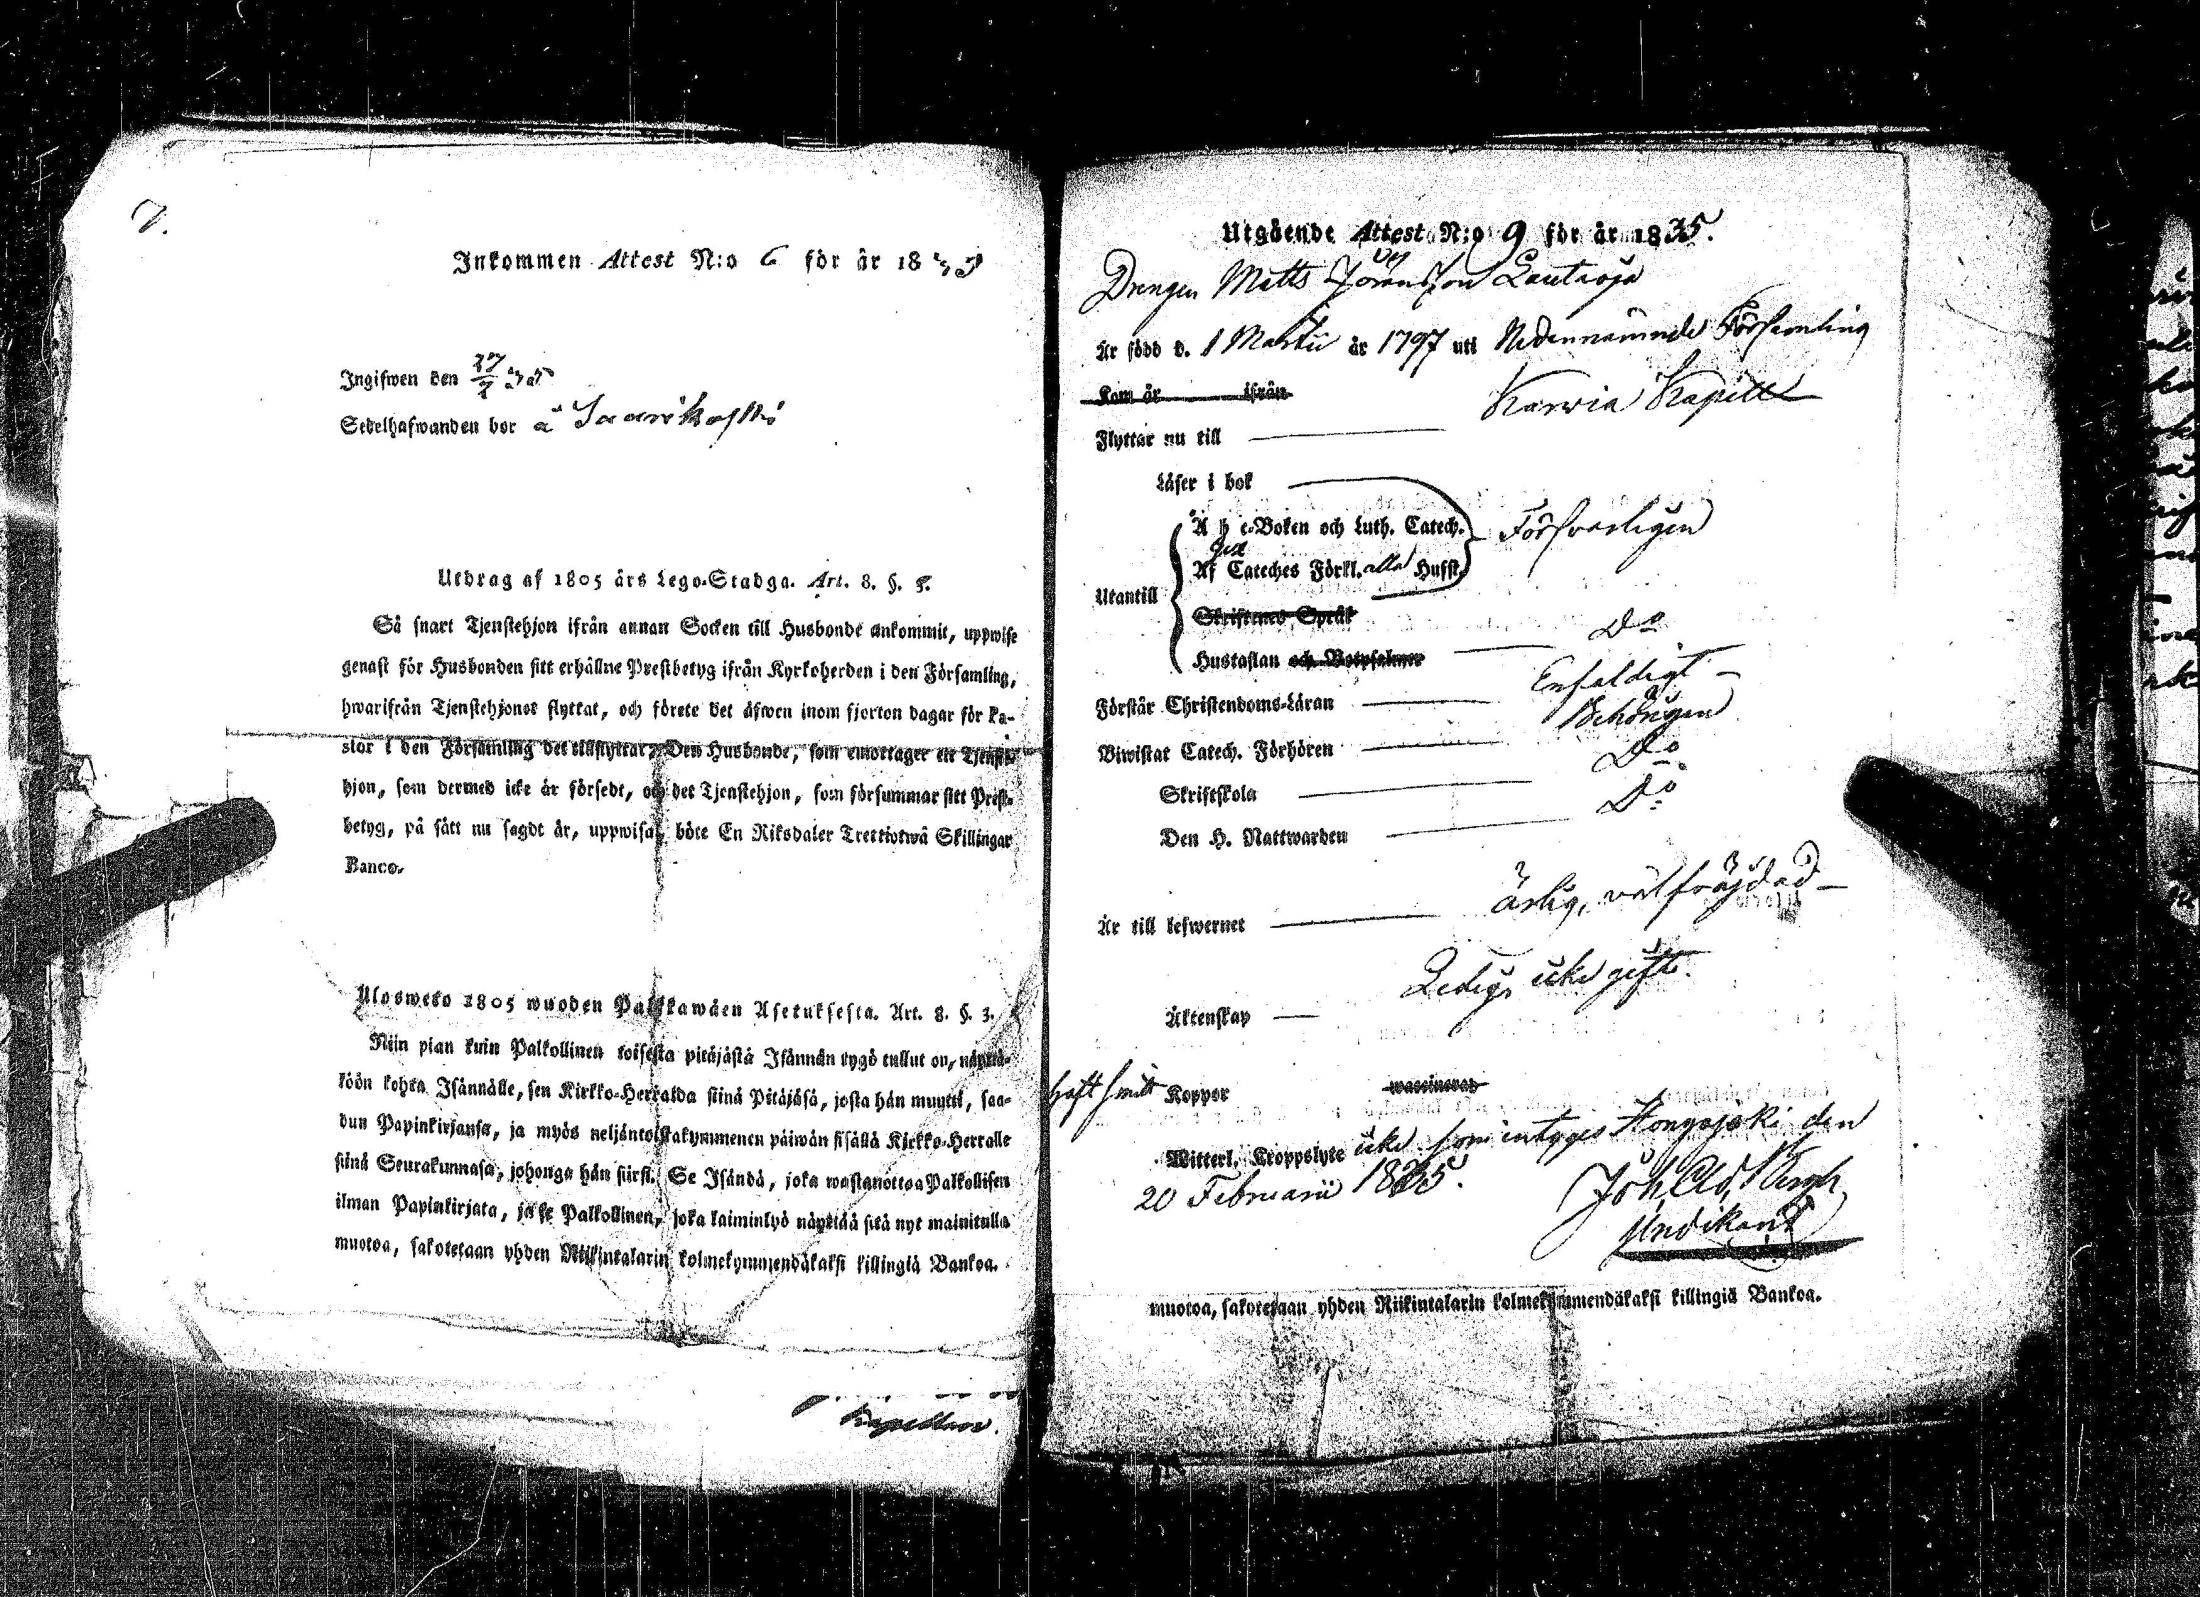 7.
Inkommen Attest N:o 6 för år 1835
Ingifwen den 27/2 35
Sedelhafwanden bor å
Utdrag af 1805 års Lego-Stadga. Art. 8. §. 3.
Så snart Tjenstehjon ifrån annan Socken till Husbonde ankommit, uppwise
genast för Husbonden sitt erhållne Prestbetyg ifrån Kyrkoherden i den Församling,
hwarifrån Tjenstehjonet flyttat, och förete det äfwen inom fjorton dagar för Pa-
stor i den Församling det tillflyttar. Den Husbonde, som emottager ett Tjenste-
hjon, som dermed icke är försedt, och det Tjenstehjon, som försummar sitt Prest-
betyg, på sätt nu sagdt är, uppwisa, böte En Riksdaler Trettiotwå Skillingar
Banco.
Ulosweto 1805 wuoden Palkkawäen Asetuksesta. Art. 8. §. 3.
Niin pian kuin Palkollinen toisesta pitäjästä Isännän tygö tullut on, näyttä-
köön kohta Isännälle, sen Kirkko-Herralda siinä Pitäjäsä, josta hän muutti, saa-
dun Papinkirjansa, ja myös neljäntoistakymmenen päiwän sisällä Kirkko-Herralle
siinä Seurakunnasa, johonga hän siirsi. Se Isändä, joka wastanottaa Palkollisen
ilman Papinkirjata, ja se Palkollinen, joka laiminlyö näyttää sitä nyt mainitulla
muotoa, sakotetaan yhden Riikintalarin kolmekymmendäkaksi killingiä Bankoa.
Kapellan.
Utgående Attest N:o 9 för år 1835.
Drengen Matts Lautaoja
Är född d. 1 Martii år 1797 uti Nedannämnde Församling
Kom år ifrån
Karvia Kapell
Flyttar nu till
Läser i bok
A b c-Boken och Luth. Catech. Försvarligen
Af Cateches Förkl. alla Hufst.
Utantill
Skriftenes Språk
Hustaflan och Botpsalmer Do
Förstår Christendoms-Läran Enfaldigt
Biwistat Catech. Förhören Behörigen
Skriftskola Do
Den H. Nattwarden Do
Är till lefwernet ärlig, välfräjdad
Äktenskap Ledig, icke gift.
haft Koppor waccinerad
Witterl. Kroppslyte icke som intygas Hongojoki den
20 Februarii 1835.
muotoa, sakotetaan yhden Riikintalarin kolmekymmendäkaksi killingiä Bankoa.